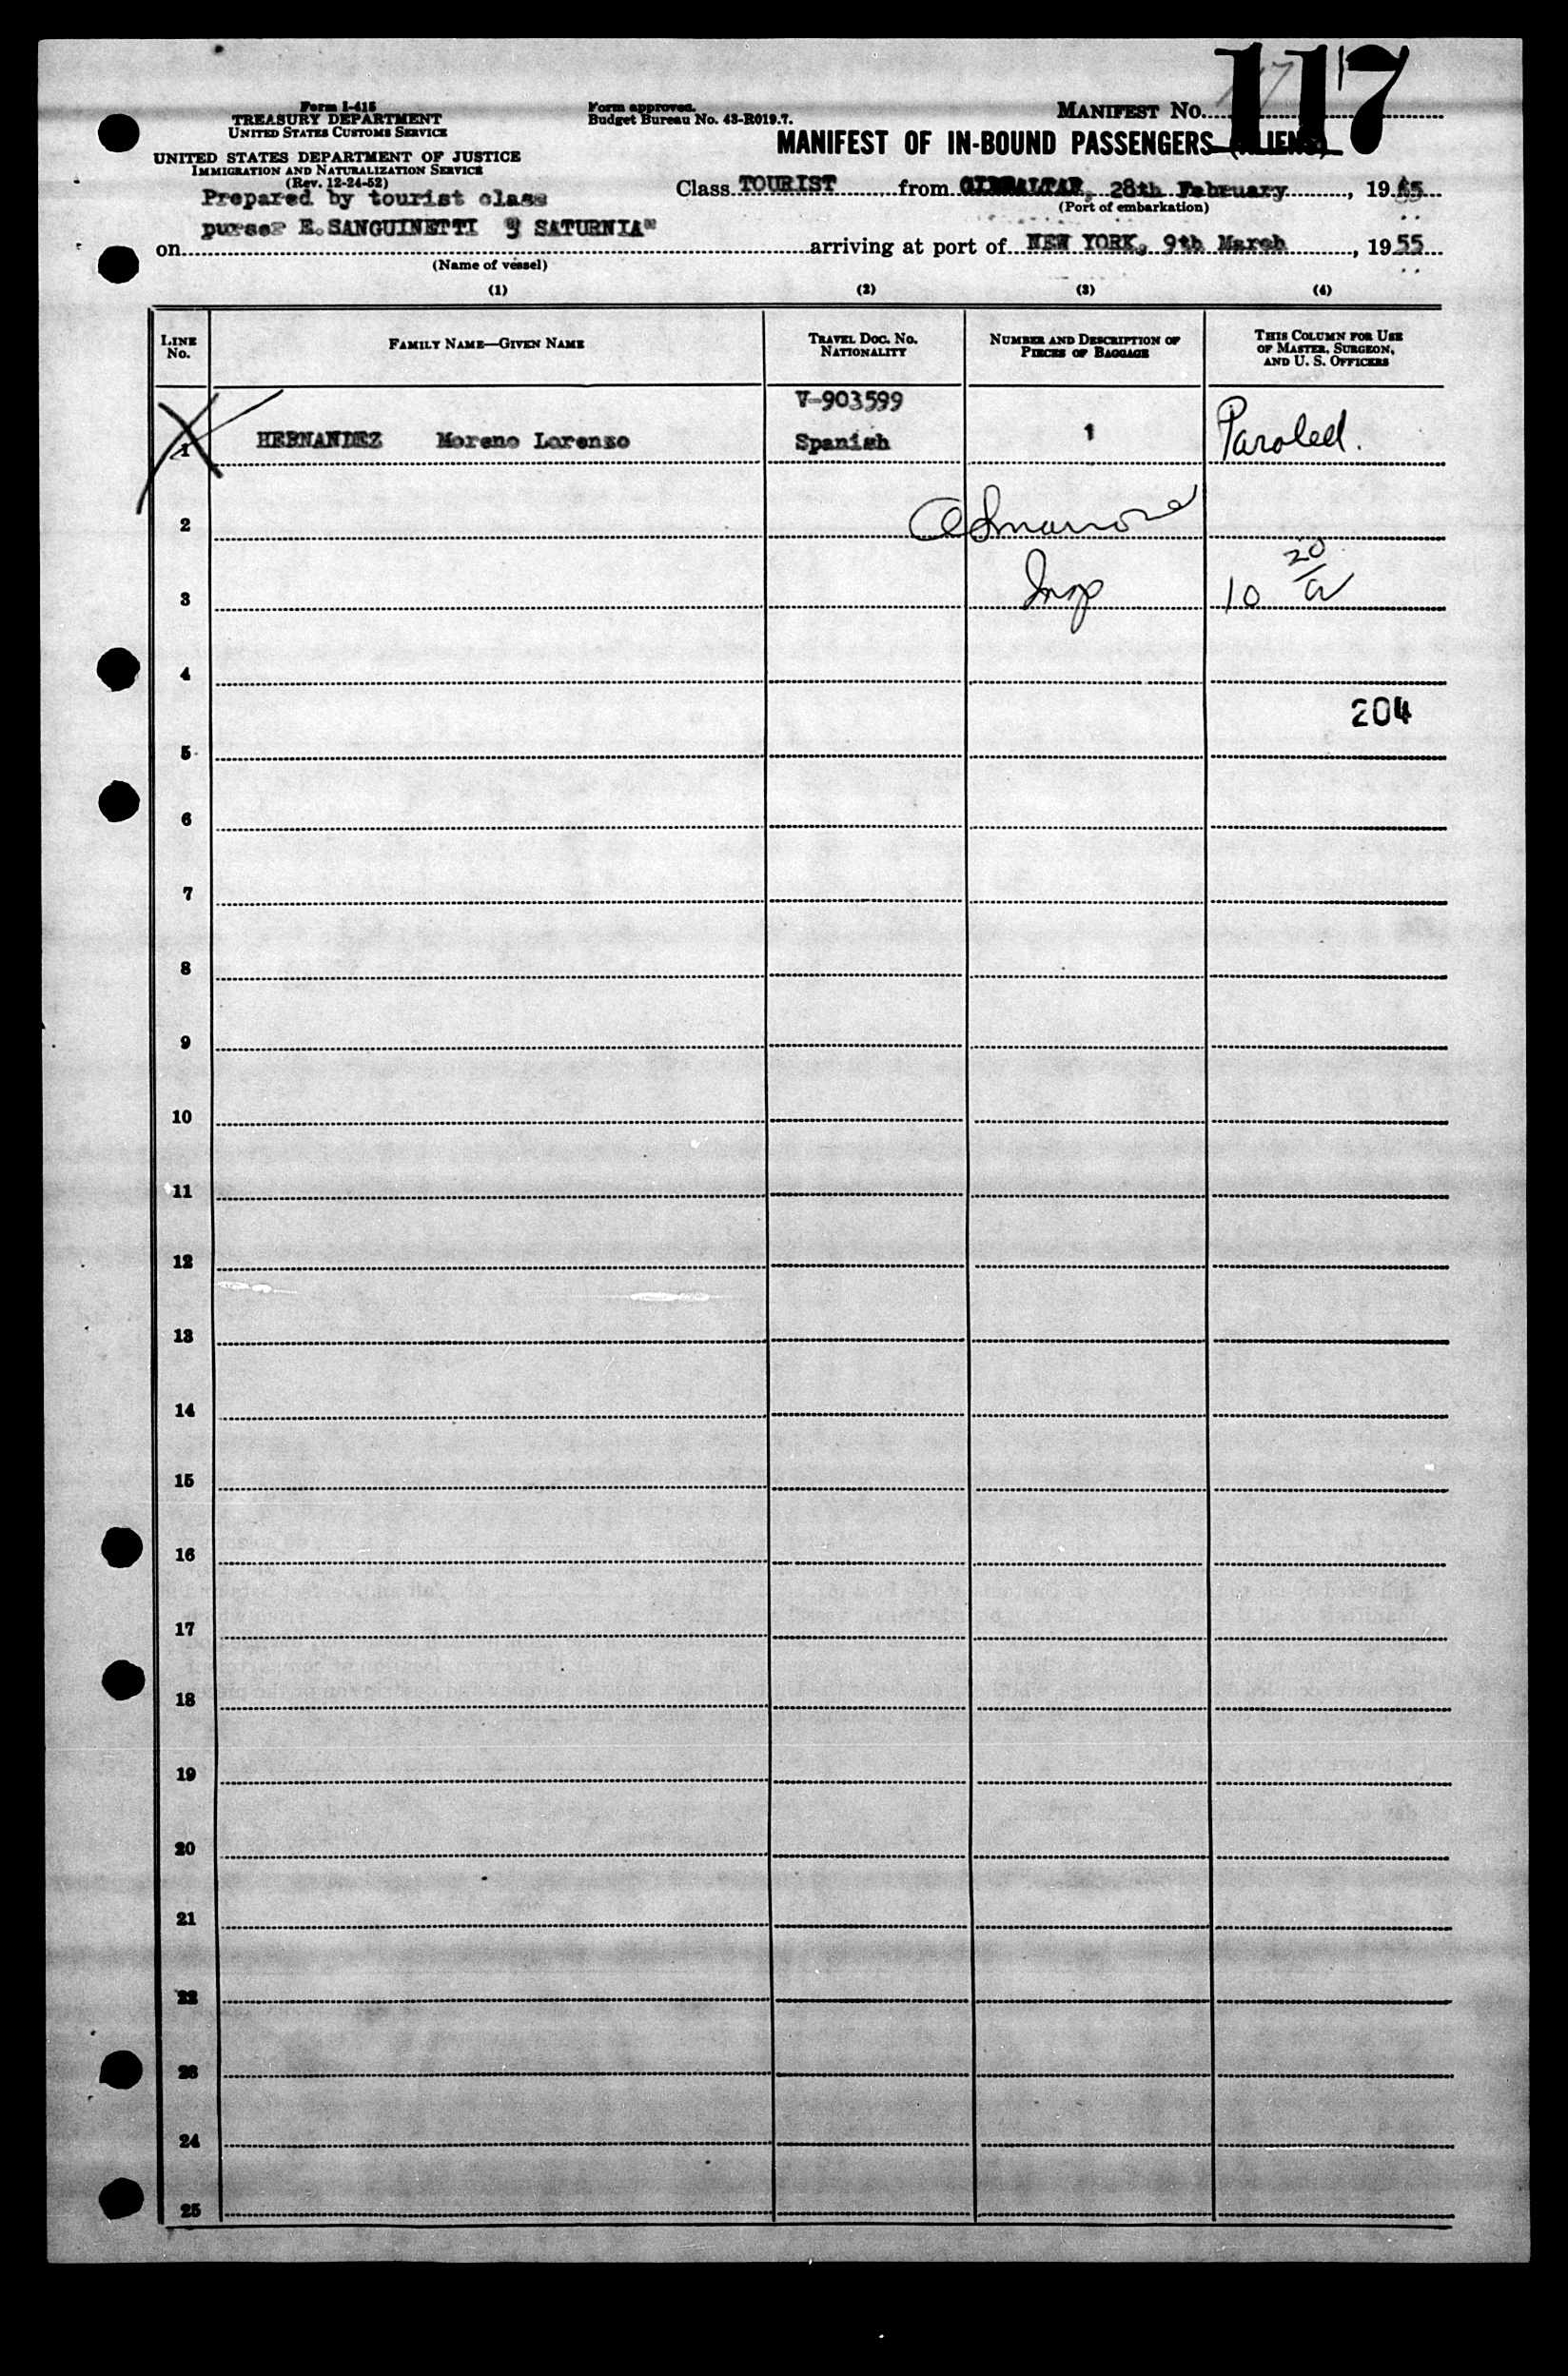 117
Form I-415
TREASURY DEPARTMENT
UNITED STATES CUSTOMS SERVICE
Form approved.
Budget Bureau No. 43-R019.7.
MANIFEST NO. 17
MANIFEST OF IN-BOUND PASSENGERS (ALIENS)
UNITED STATES DEPARTMENT OF JUSTICE
IMMIGRATION AND NATURALIZATION SERVICE
(Rev. 12-24-52)
Prepared by tourist class
Class TOURIST from GIBRALTAR, 28th February, 1955
(Port of embarkation)
purser E. SANGUINETTI "SATURNIA"
on arriving at port of NEW YORK, 9th March, 1955
(Name of vessel)
(1) (2) (3) (4)
LINE No. FAMILY NAME—GIVEN NAME TRAVEL DOC. NO. NATIONALITY NUMBER AND DESCRIPTION OF PIECES OF BAGGAGE THIS COLUMN FOR USE OF MASTER, SURGEON, AND U. S. OFFICERS
V-903599
1 HERNANDEZ Moreno Lorenzo Spanish 1 Paroled.
2
3 Insp 10 20
4
204
5
6
7
8
9
10
11
12
13
14
15
16
17
18
19
20
21
22
23
24
25